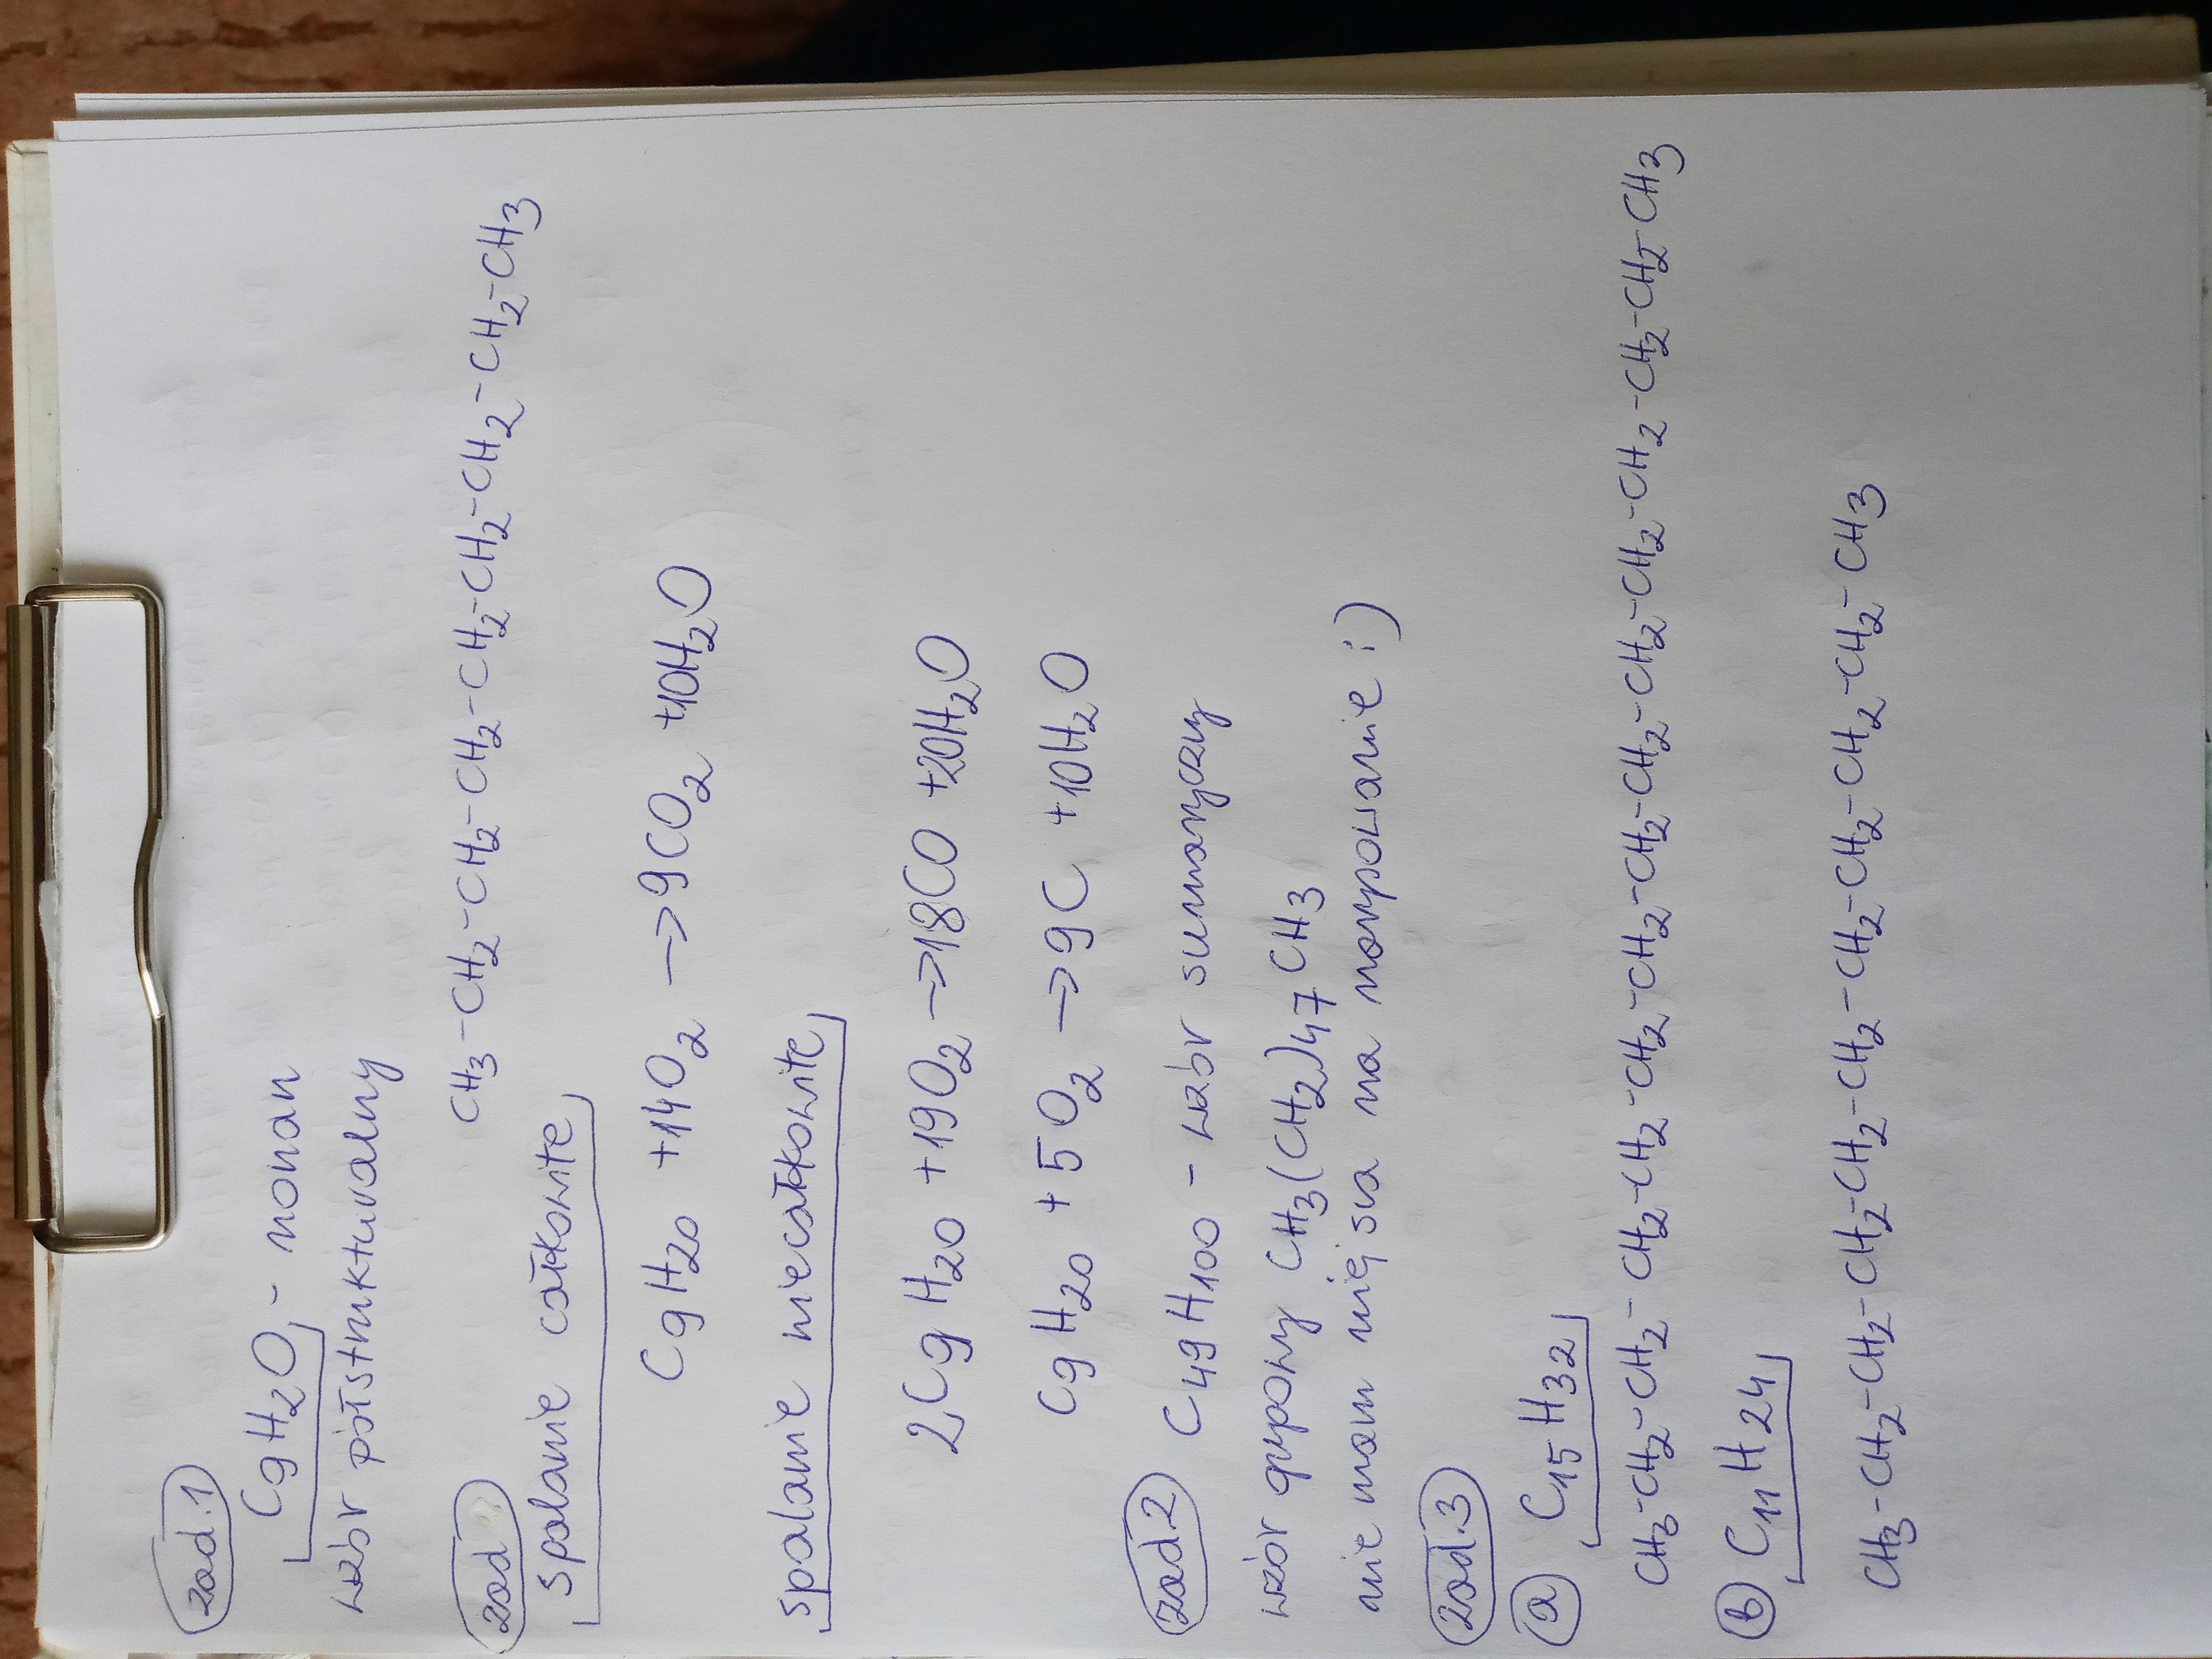 zad.1
C9H20 - nonan
wzór półstrukturalny
CH3-CH2-CH2-CH2-CH2-CH2-CH2-CH2-CH3
zad
spalanie całkowite
C9H20 +14O2 →9CO2 +10H2O
spalanie niecałkowite
2C9H20 +19O2 →18CO +20H2O
C9H20 + 5O2 →9C +10H2O
zad.2 C49H100 - wzór sumaryczny
wzór grupowy CH3(CH2)47CH3
nie mam miejsca na narysowanie :)
zad.3
a C15H32
CH3-CH2-CH2-CH2-CH2-CH2-CH2-CH2-CH2-CH2-CH2-CH2-CH2-CH2-CH3
b C11H24
CH3-CH2-CH2-CH2-CH2-CH2-CH2-CH2-CH2-CH2-CH3